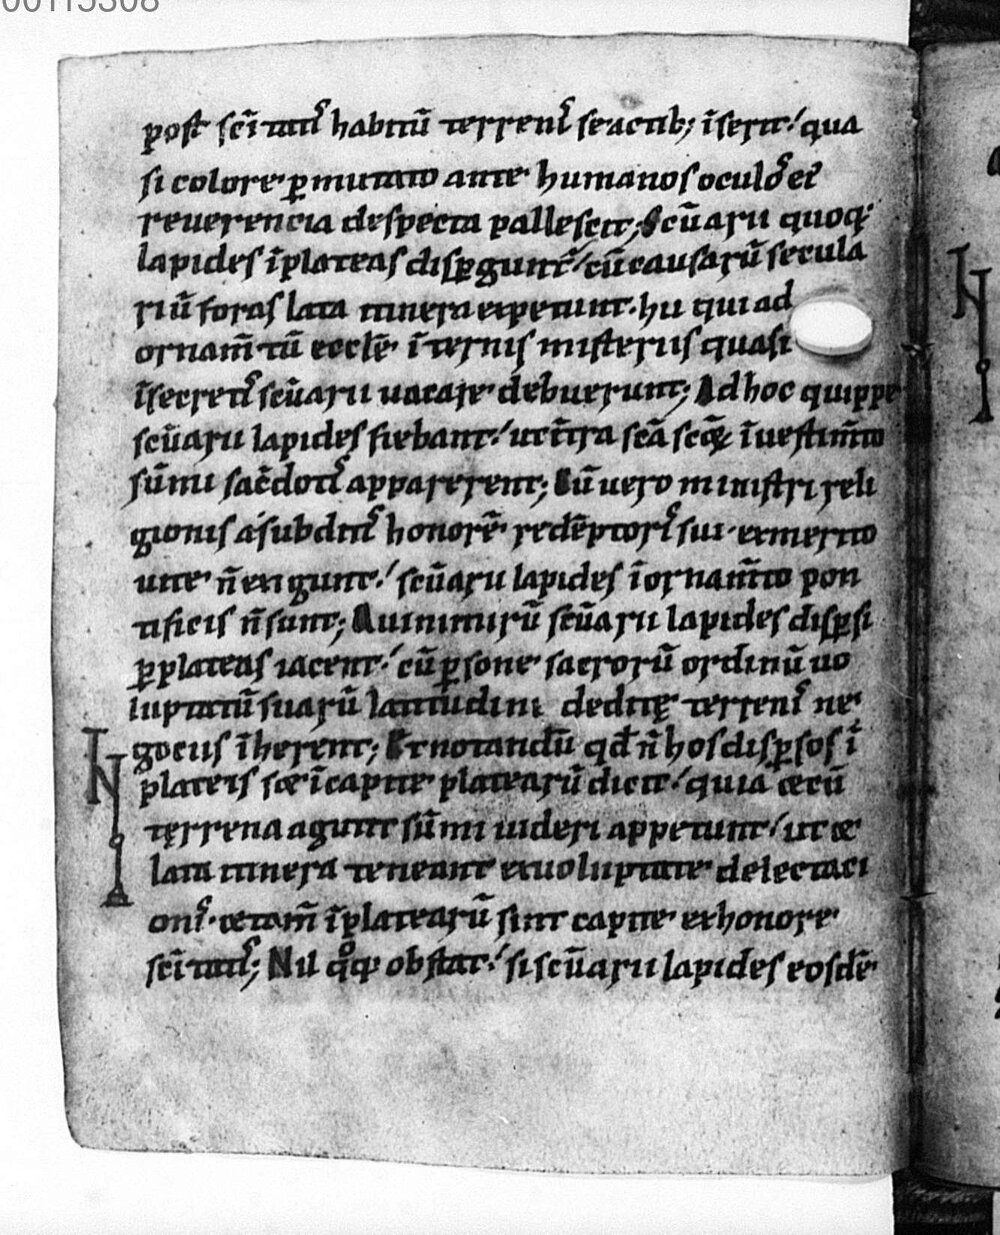 00115308
post scı̄ tatıſ habitū terrenıſ se actib; īserit / qua
si colore ꝑmutato ante humanos oculoſ eiꝰ
reuerencia despecta pallescit; Scūarii quoq;
lapides ī plateas dispgunt̄ / cū causarū secula
riū foras lata itinera expetunt. hii qui ad
ornam̄tū eccłē īternis misteriis quasi
ī secretıſ scūarii uacare debuerunt; Ad hoc quippe
scūarii lapides fiebant / ut ītra scā scōꝝ ī uestim̄to
sūmi sac̄dotıſ apparerent; Cū uero ministri reli
gionis a subditıſ honorē redēptorıſ sui ex merito
uite n̄ exigunt / scūarii lapides ī ornam̄to pon
tificis n̄ sunt; Qui nimirū scūarii lapides dispsi
ꝑ plateas iacent / cū ꝑsone sacrorū ordinū uo
luptatū suarū latitudini deditę terrenıſ ne
gociis īherent; Et notandū qd̄ n̄ hos dispsos ī
plateis sꝫ ī capite platearū dicit / quia ⁊ cū
tęrrena agunt sūmi uideri appetunt / ut ⁊
lata itinera teneant ex uoluptate delectaci
onıſ. ⁊ tam̄ ī platearū sint capite ex honore
scı̄ tatıſ; Nil q̊q obstat / si scūarii lapides eosdē